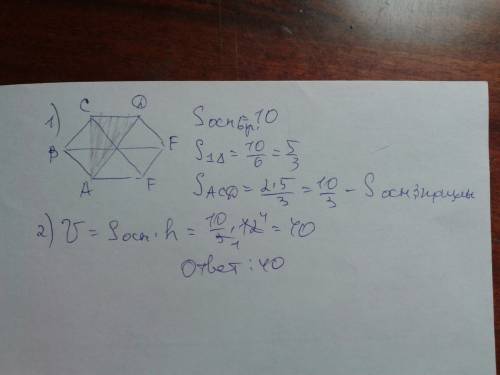 1)
C D
B F
A F
Sосн бпр. = 10
S1Δ = 10/6 = 5/3
SACD = 2·5/3 = 10/3 – Sосн 3 призмы
2) V = Sосн · h = 10/3 · 12 = 40
Ответ: 40